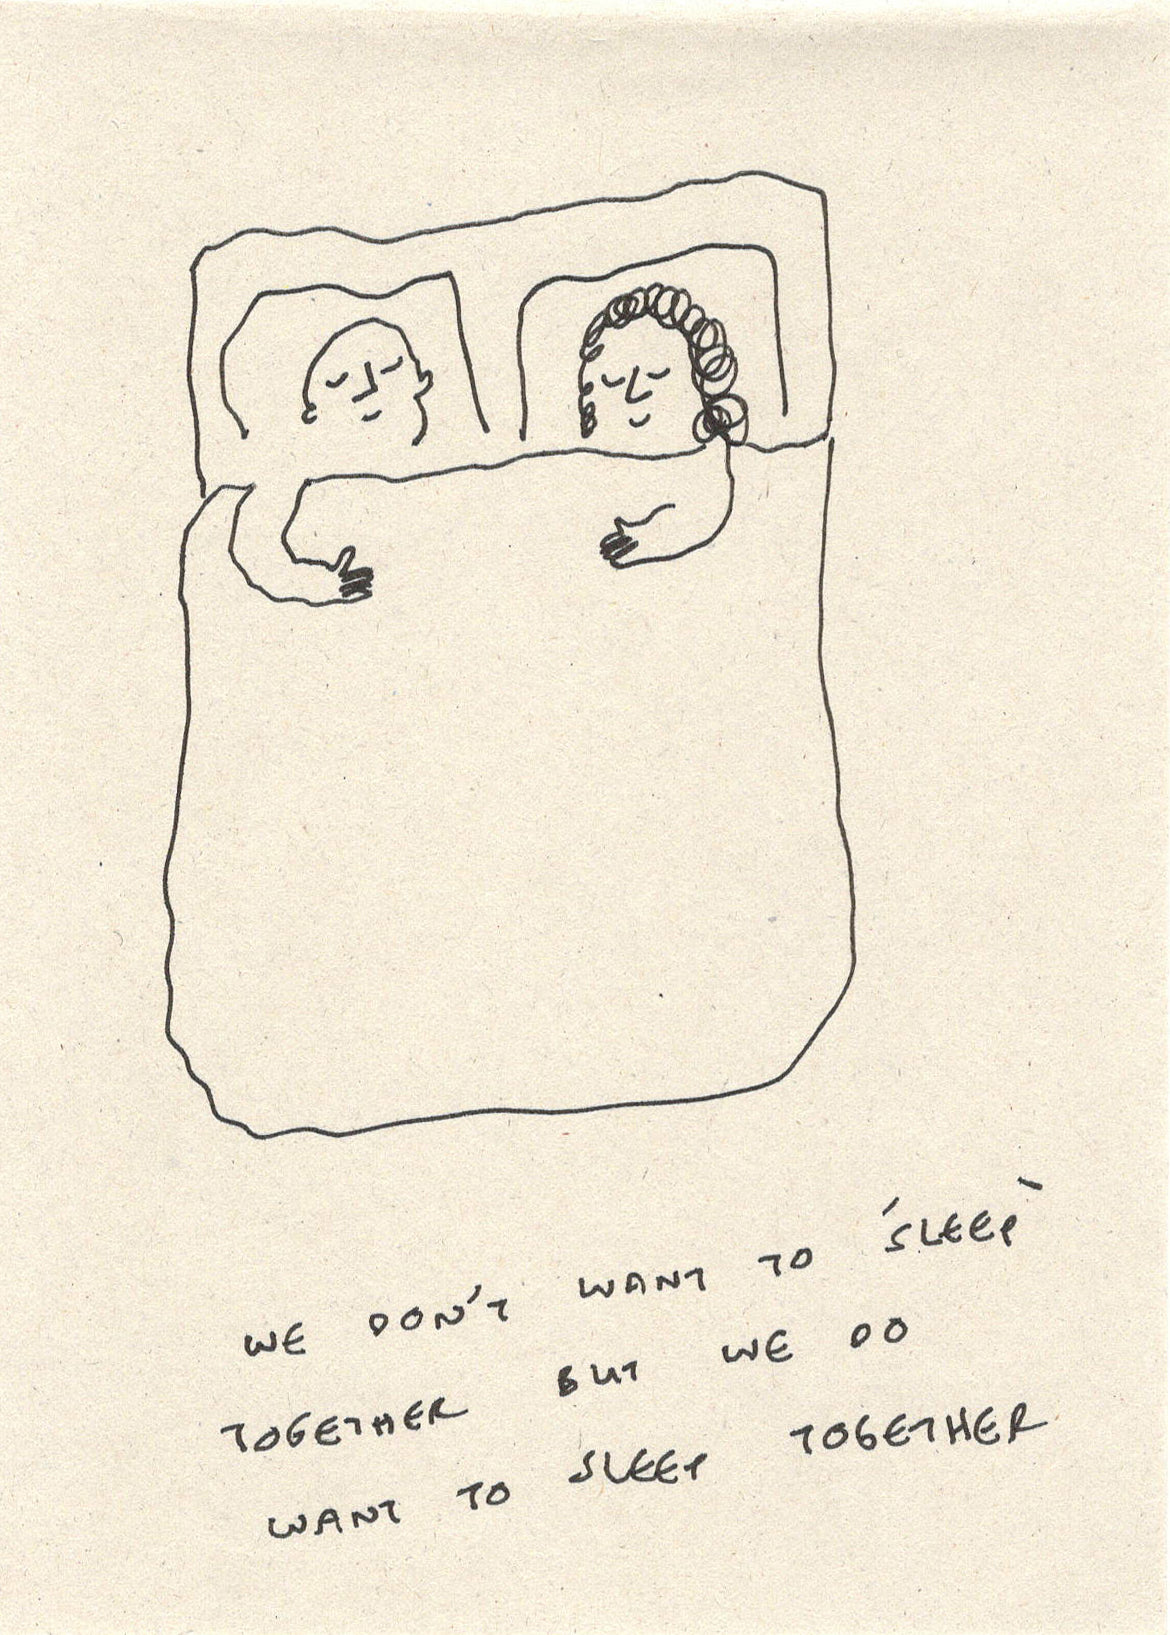 WE DON'T WANT TO 'SLEEP'
TOGETHER BUT WE DO
WANT TO SLEEP TOGETHER